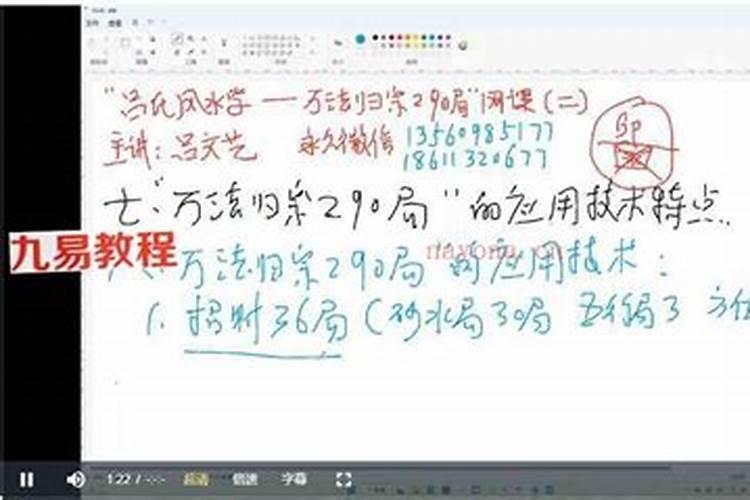 "吕氏风水学一万法归宗290局"网课(二)
主讲:吕文艺 永久微信 13560985177
18611320677
七、"万法归宗290局"的应用技术特点
九易教程
万法归宗290局"的应用技术:
1. 招财36局(砂水局30局 五行局3 方位
1:22 / -:-- 超清 倍速 字幕